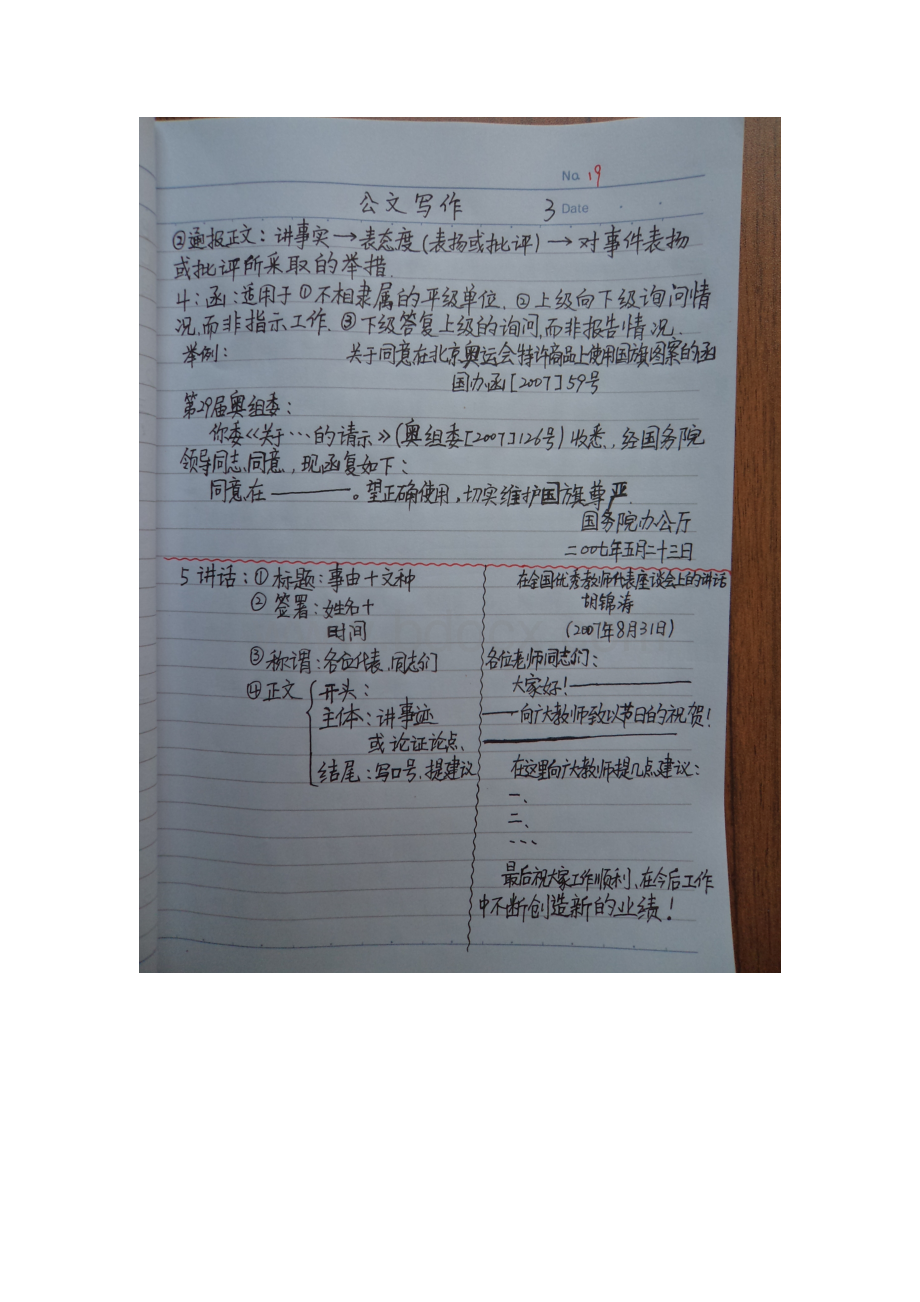 No. 19
公文写作 3 Date
②通报正文：讲事实→表态度(表扬或批评)→对事件表扬
或批评所采取的举措.
4：函：适用于①不相隶属的平级单位.②上级向下级询问情
况,而非指示工作.③下级答复上级的询问,而非报告情况.
举例： 关于同意在北京奥运会特许商品上使用国旗图案的函
国办函[2007]59号
第29届奥组委：
你委《关于…的请示》(奥组委[2007]126号)收悉,经国务院
领导同志同意,现函复如下：
同意在————。望正确使用,切实维护国旗尊严.
国务院办公厅
二00七年五月二十三日
5 讲话：①标题：事由十文种
②签署：姓名十
时间
③称谓：各位代表、同志们
④正文
开头：
主体：讲事迹
或论证论点、
结尾：写口号,提建议
在全国优秀教师代表座谈会上的讲话
胡锦涛
(2007年8月31日)
各位老师同志们：
大家好!————
——向广大教师致以节日的祝贺!
在这里向广大教师提几点建议：
一、
二、
...
最后祝大家工作顺利、在今后工作
中不断创造新的业绩!